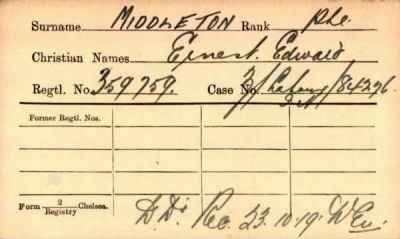 Surname MIDDLETON Rank Pte.
Christian Names Ernest Edward
Regtl. No. 359759. Case No.
Former Regtl. Nos.
Form 2 Registry Chelsea.
23.10.19.